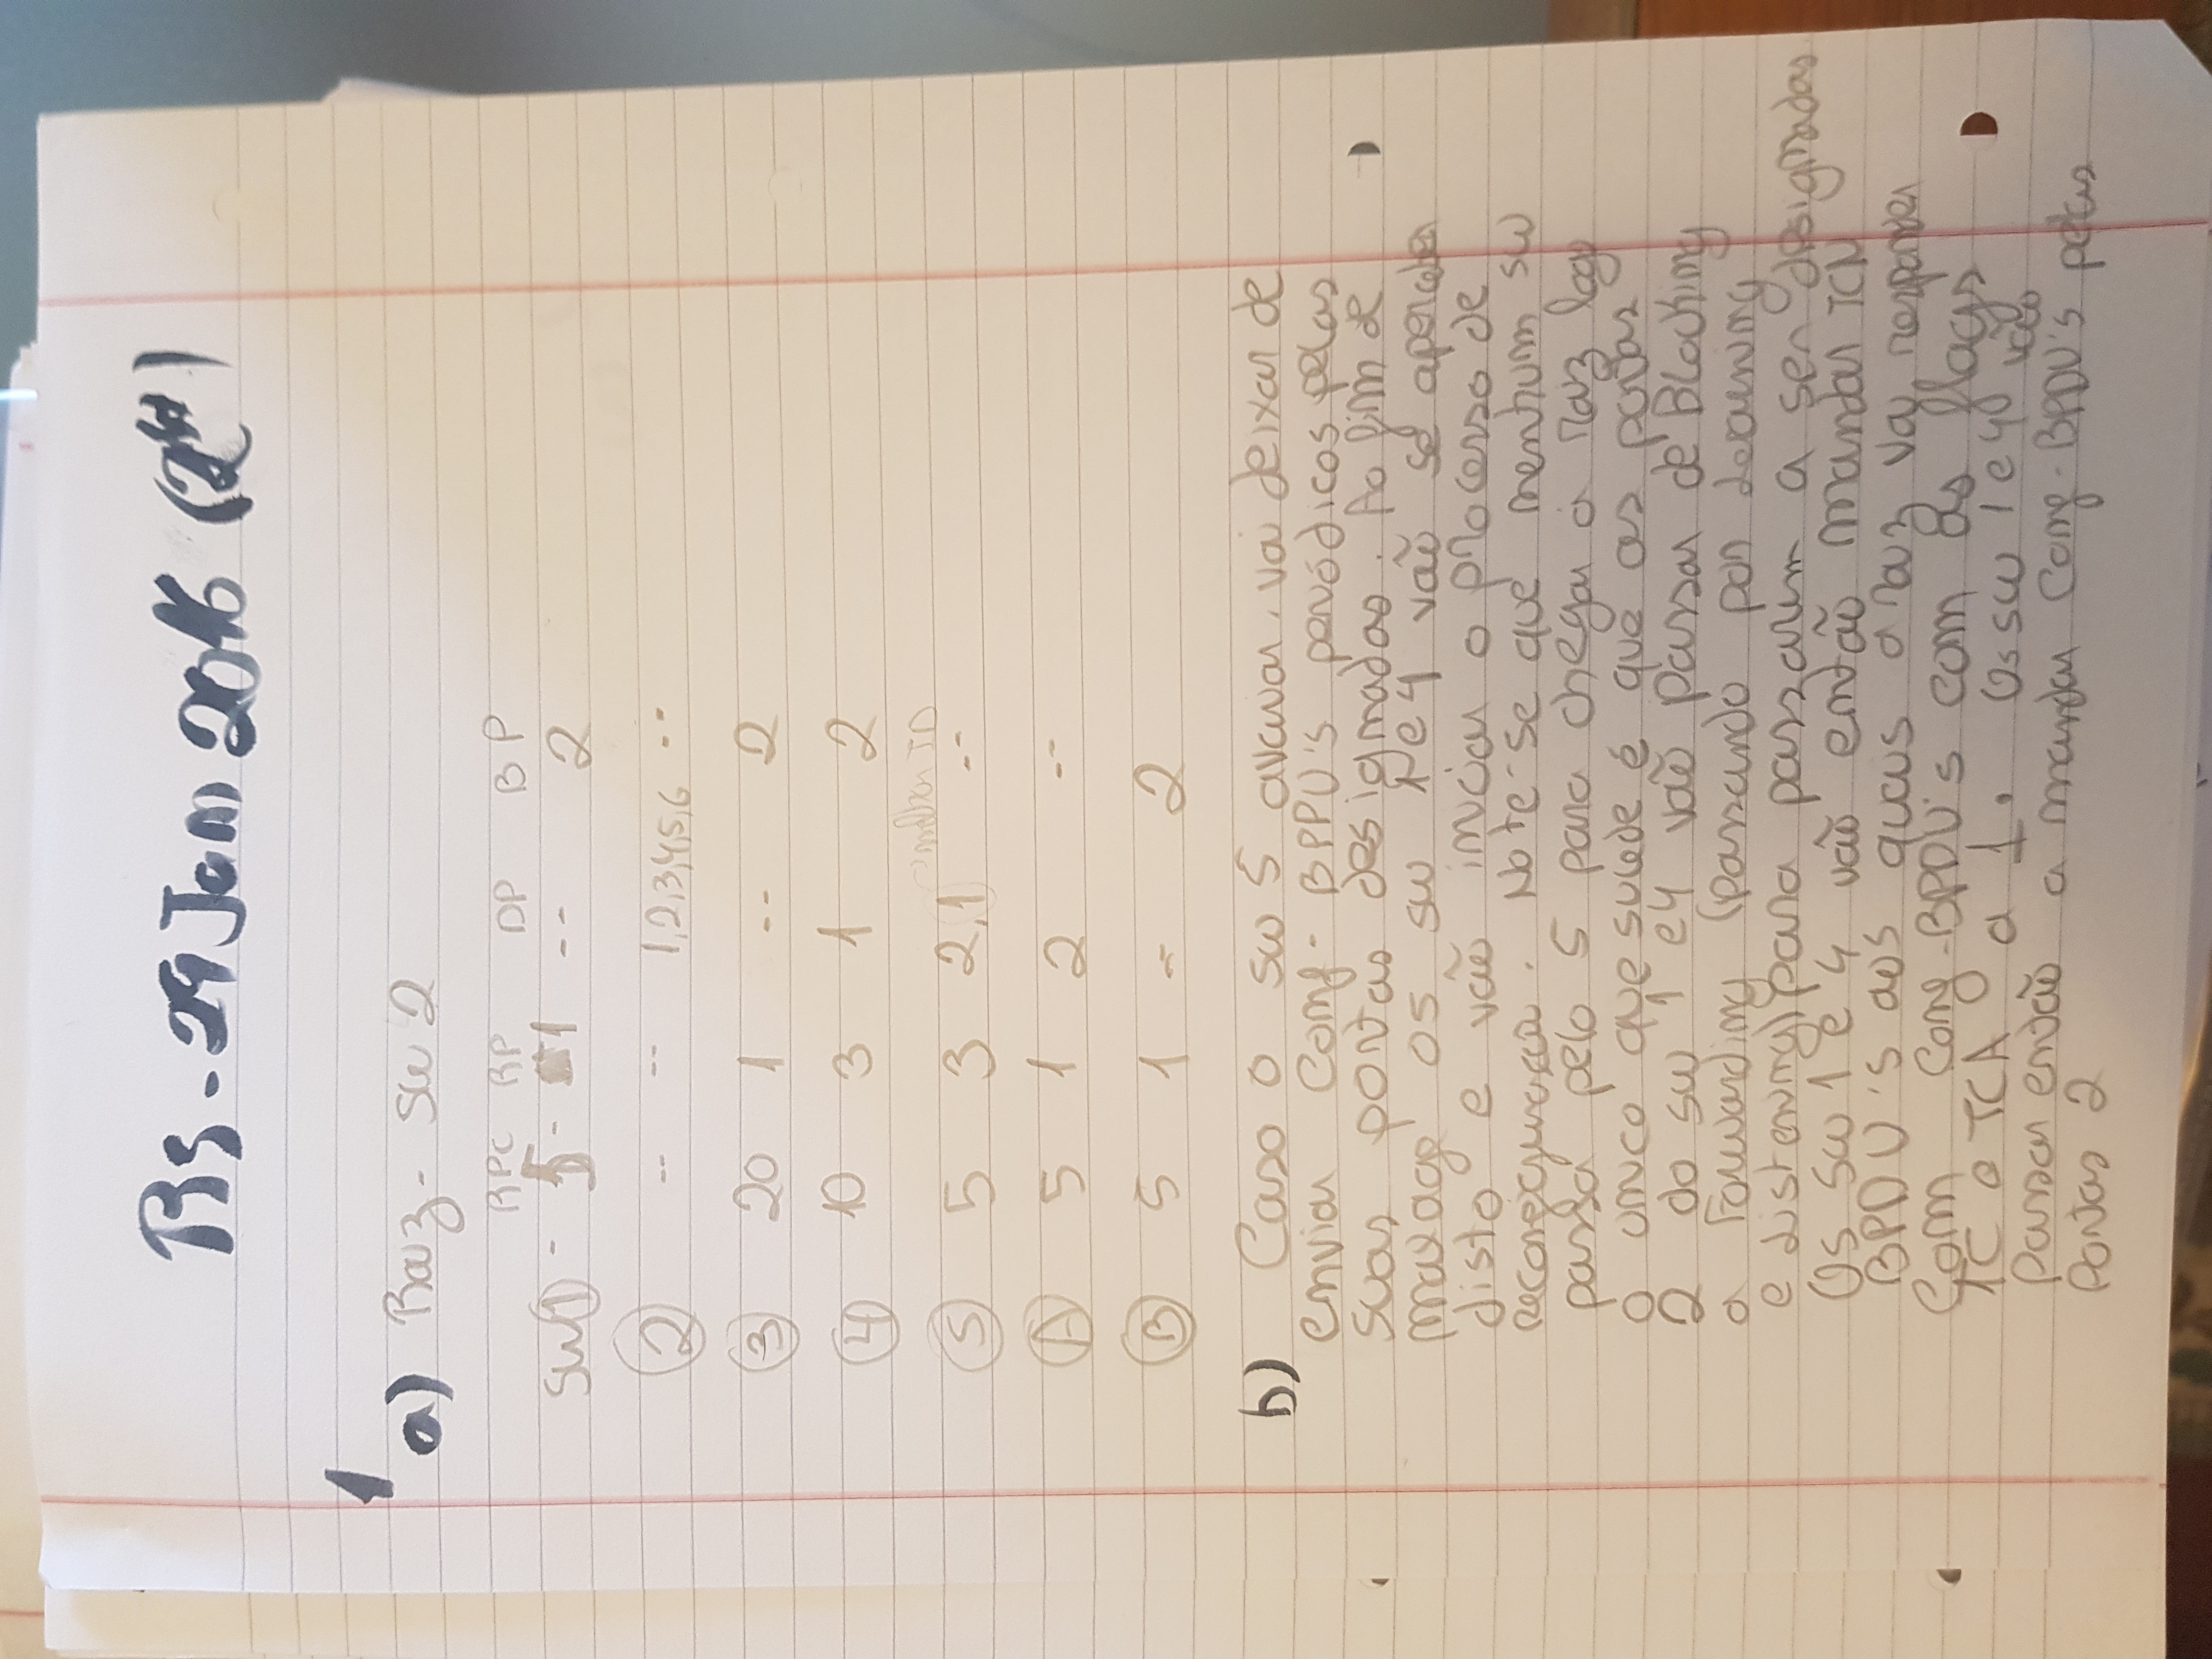 RS - 29 Jan 2016 (2ª)
1
a) Raiz - SW 2
RPC RP DP BP
SW 1 - 5 - 1 -- 2
2 -- -- 1,2,3,4,5,6 --
3 20 1 -- 2
4 10 3 1 2
melhor ID
5 5 3 2,1 --
A 5 1 2 --
B 5 1 -- 2
b) Caso o sw 5 avariar, vai deixar de
enviar Conf-BPPU's periódicos pelas
suas portas designadas. Ao fim de
maxage os sw 1 e 4 vão se aperceber
disto e vão iniciar o processo de
reconfiguração. Note-se que nenhum sw
passa pelo 5 para chegar à raiz logo
o unico que sucede é que as portas
2 do sw 1 e 4 vão passar de Blocking
a Forwarding (passando por Learning
e Listening) para passarem a ser designadas
Os sw 1 e 4 vão então mandar TCN
BPDU's aos quais a raiz vai responder
com Conf-BPDU's com as flags
TC e TCA a 1. Os sw 1 e 4 vão
passar então a mandar Conf-BPDU's pelas
Portas 2